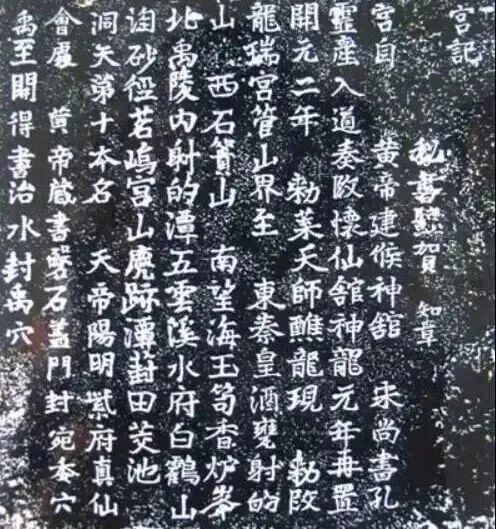 宮記
秘書監賀 知章
宮自 黃帝建候神舘 宋尚書孔
靈産入道奏改懷仙舘神龍元年再置
開元二年 勅葉天師醮龍現 勅改
龍瑞宮管山界至 東秦皇酒甕射的
山 西石簣山 南望海玉笥香炉峯
北禹陵内射的潭五雲溪水府白鶴山
淘砂徑茗塢宮山鹿跡潭葑田茭池
洞天第十本名 天帝陽明紫府真仙
會處 黃帝藏書磐石盖門封宛委穴
禹至開得書治水封禹穴